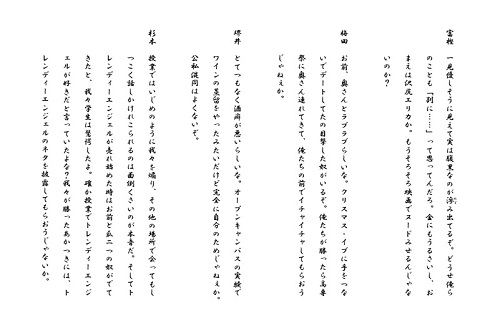 富樫　一見優しそうに見えて実は腹黒なのが滲み出てるぞ。どうせ俺ら
のことも「別に……」って思ってんだろ。金にもうるさいし、お
まえは沢尻エリカか。もうそろそろ映画でヌードみせるんじゃな
いのか?
梅田　お前、奥さんとラブラブらしいな。クリスマス・イブに手をつな
いでデートしてたの目撃した奴がいるぞ。俺たちが勝ったら高専
祭に奥さん連れてきて、俺たちの前でイチャイチャしてもらおう
じゃねぇか。
堺井　とてつもなく酒癖が悪いらしいな。オープンキャンパスの実験で
ワインの蒸留をやったみたいだけど完全に自分のためじゃねぇか。
公私混同はよくないぞ。
杉本　授業ではいじめのように我々を煽り、その他の場所で会ってもし
つこく話しかけれこられるのは面倒くさいのが本音だ。そしてト
レンディーエンジェルが売れ始めた時はお前と瓜二つの奴がでて
きたと、我々学生は驚愕したよ。確か授業でトレンディーエンジ
ェルが好きだと言っていたよな?我々が勝ったあかつきには、ト
レンディーエンジェルのネタを披露してもらおうじゃないか。